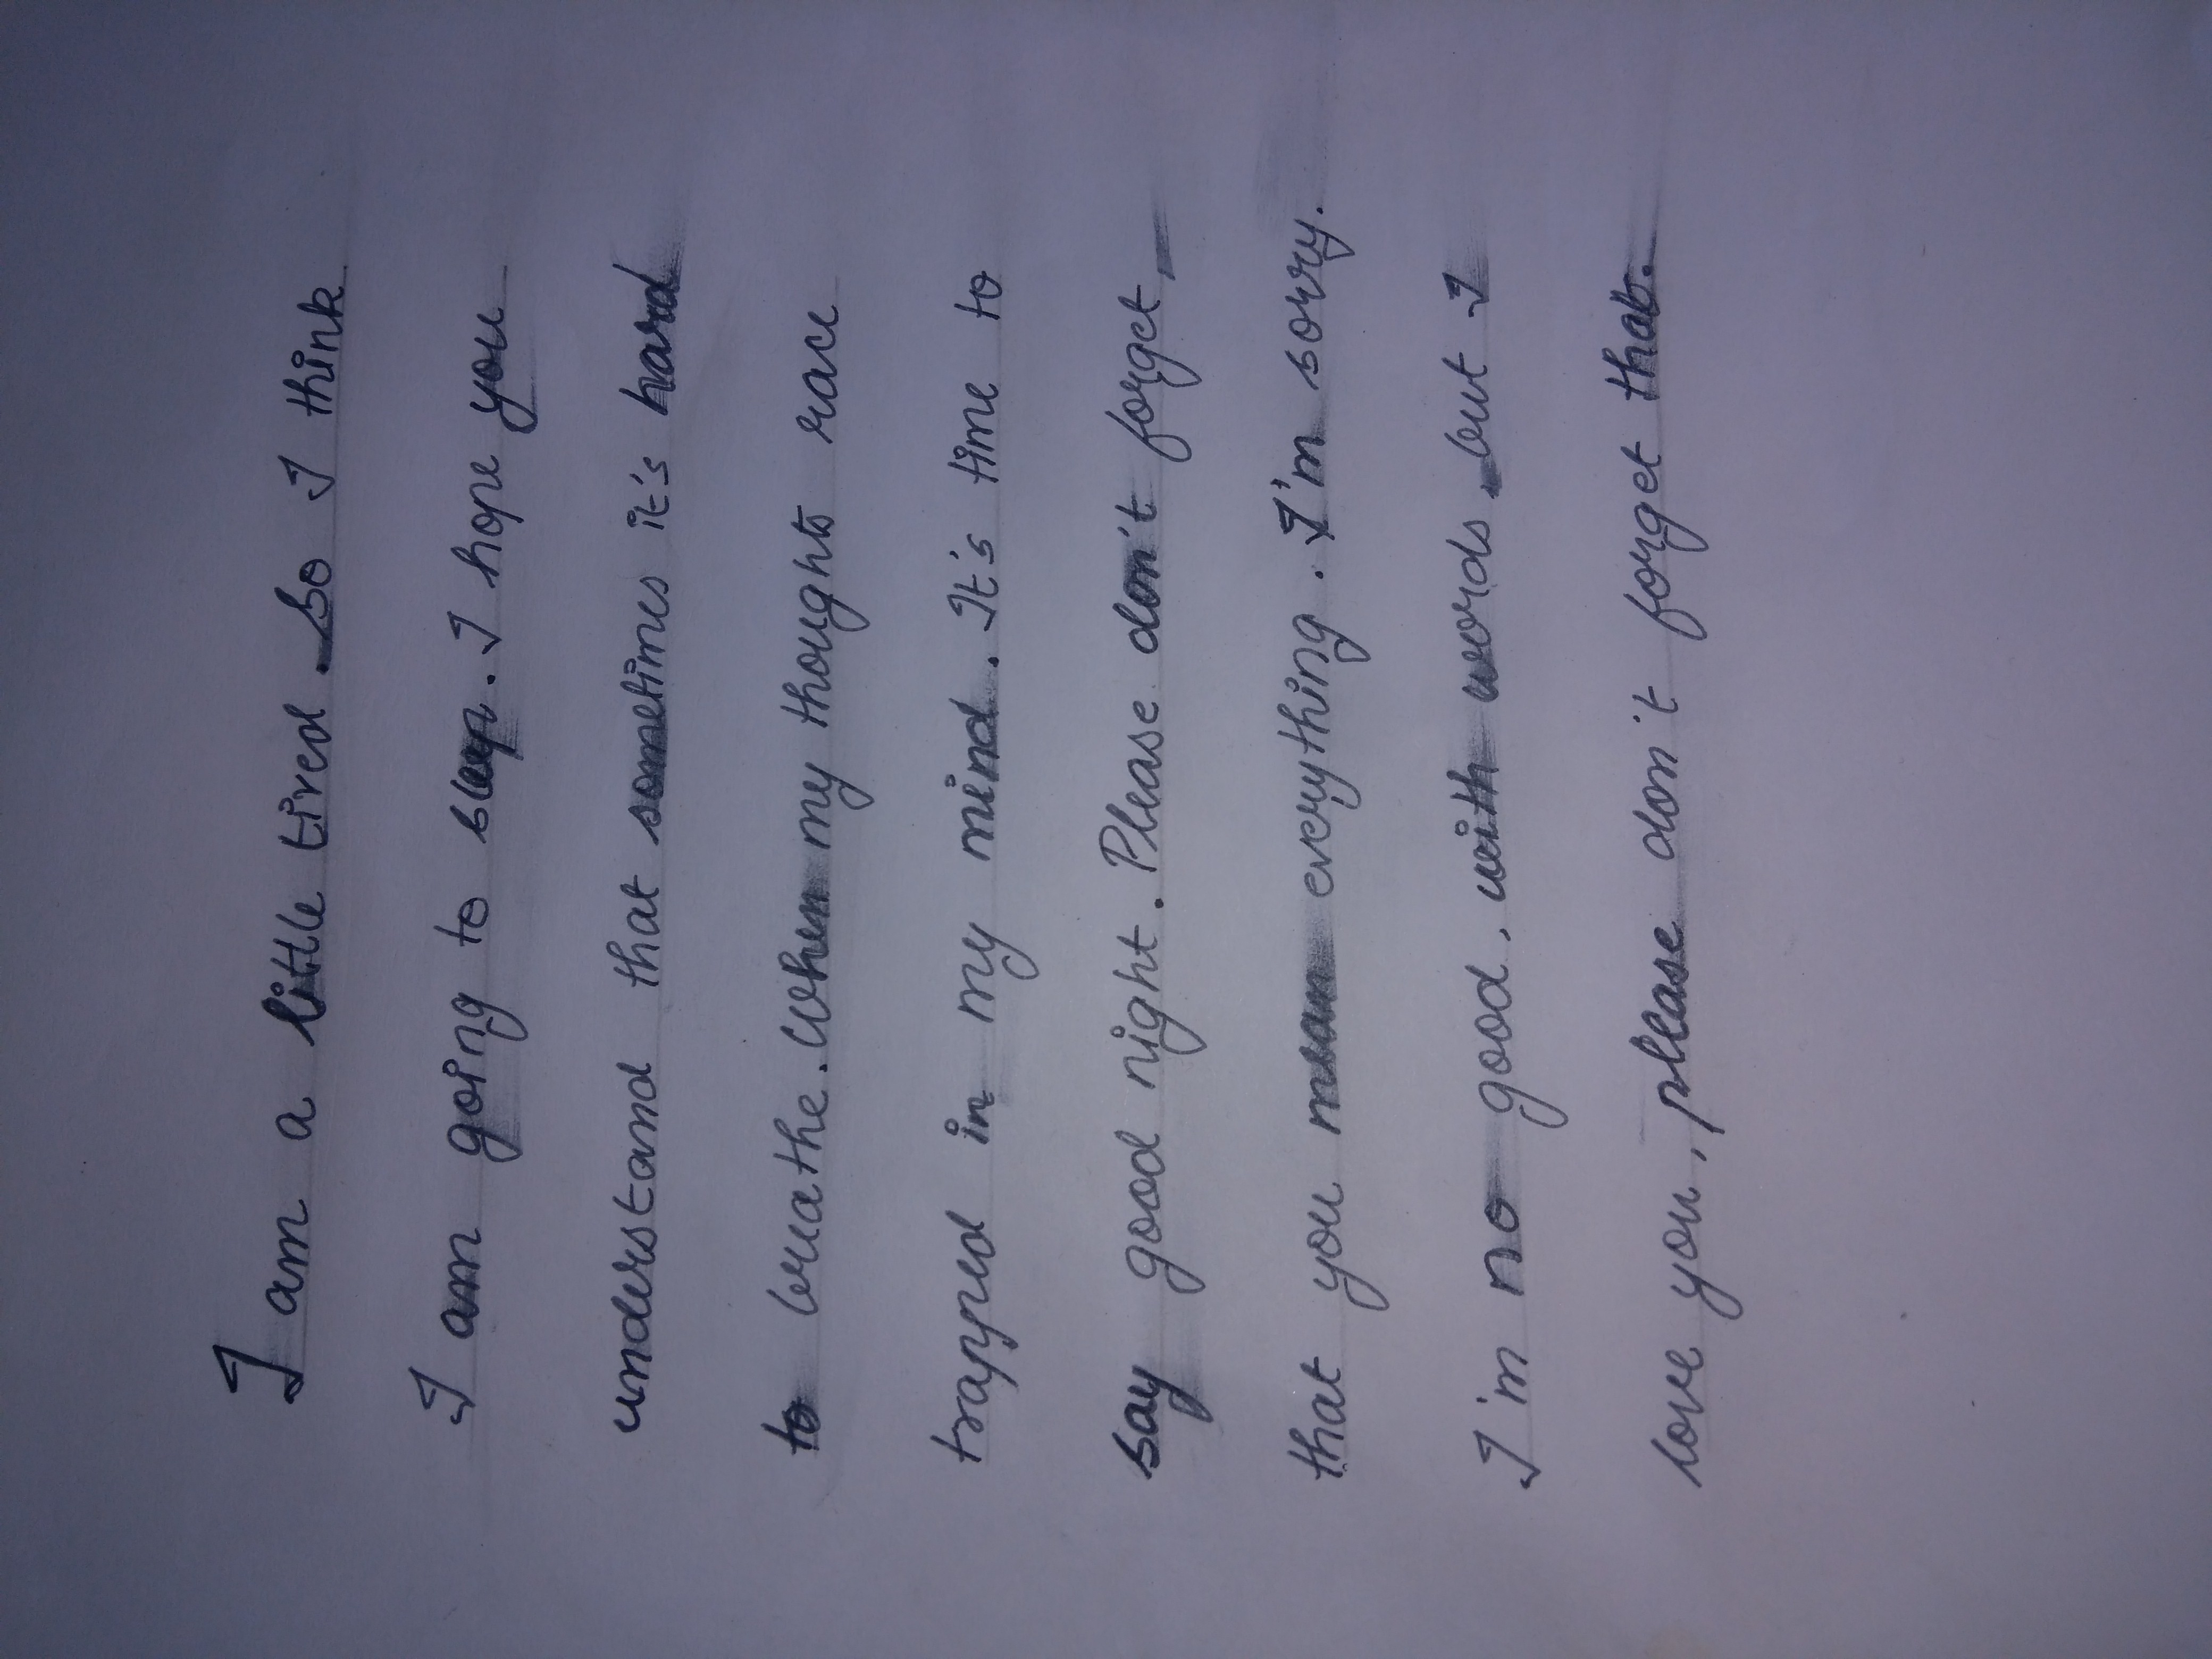 I am a little tired. So I think
I am going to sleep. I hope you
understand that sometimes it's hard
to breathe. When my thoughts race
trapped in my mind. It's time to
say good night. Please don't forget,
that you mean everything. I'm sorry.
I'm no good, with words but I
love you, please don't forget that.